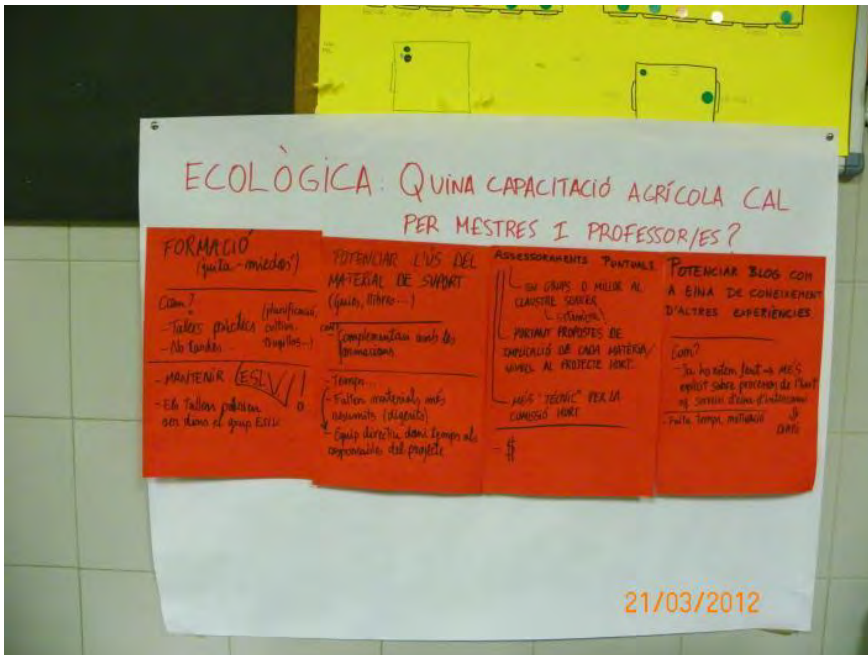 ECOLÒGICA: QUINA CAPACITACIÓ AGRÍCOLA CAL
PER MESTRES I PROFESSOR/ES?
FORMACIÓ
("quita-miedos")
Com?
- Tallers pràctics (planificació,
cultiu,
- No tardes...
- MANTENIR ESLV!
- Els tallers podrien
ser dins el grup
POTENCIAR L'ÚS DEL
MATERIAL DE SUPORT
(Guies, llibres...)
- Complementari amb les
formacions
- Temps
- Falten materials més
resumits (digerits)
- Equip directiu doni temps als
responsables del projecte
ASSESSORAMENTS PUNTUALS
EN GRUPS O MILLOR AL
CLAUSTRE SENCER
PORTANT PROPOSTES DE
IMPLICACIÓ DE CADA MATÈRIA/
NIVELL AL PROJECTE HORT
MÉS "TÈCNIC" PER LA
COMISSIÓ HORT
- $
POTENCIAR BLOG COM
A EINA DE CONEIXEMENT
D'ALTRES EXPERIÈNCIES
Com?
- Ja ho estem fent → MÉS
explicit sobre processos de l'hort
servir d'eina d'intercanvi
- Falta temps, motivació
21/03/2012